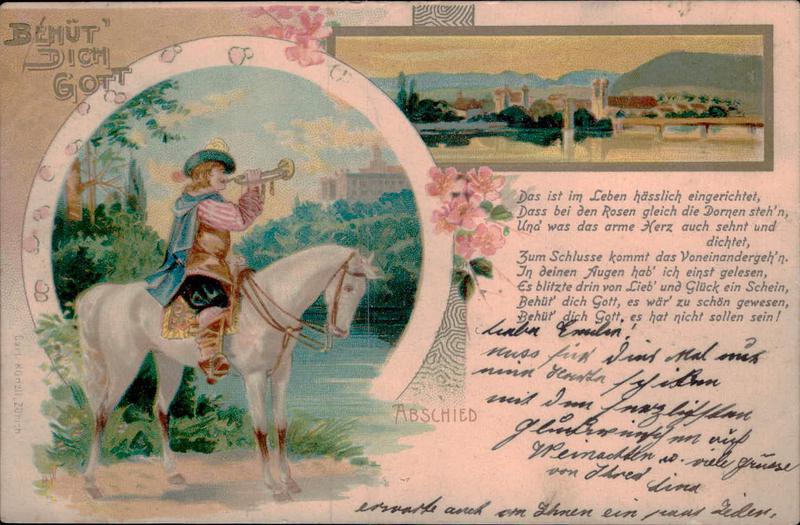 BEHÜT'
DICH
GOTT
Das ist im Leben hässlich eingerichtet,
Dass bei den Rosen gleich die Dornen steh'n,
Und was das arme Herz auch sehnt und
dichtet,
Zum Schlusse kommt das Voneinandergeh'n.
In deinen Augen hab' ich einst gelesen,
Es blitzte drin von Lieb' und Glück ein Schein,
Behüt' dich Gott, es wär' zu schön gewesen,
Behüt' dich Gott, es hat nicht sollen sein!
ABSCHIED
Carl Künzli, Zürich
muss für dies Mal nur
eine Karte schicken
mit den herzlichsten
Glückwünschen auf
Weinachten u. viele Grüsse
von Ihrer
Lina
erwarte auch von Ihnen ein paar Zeilen.